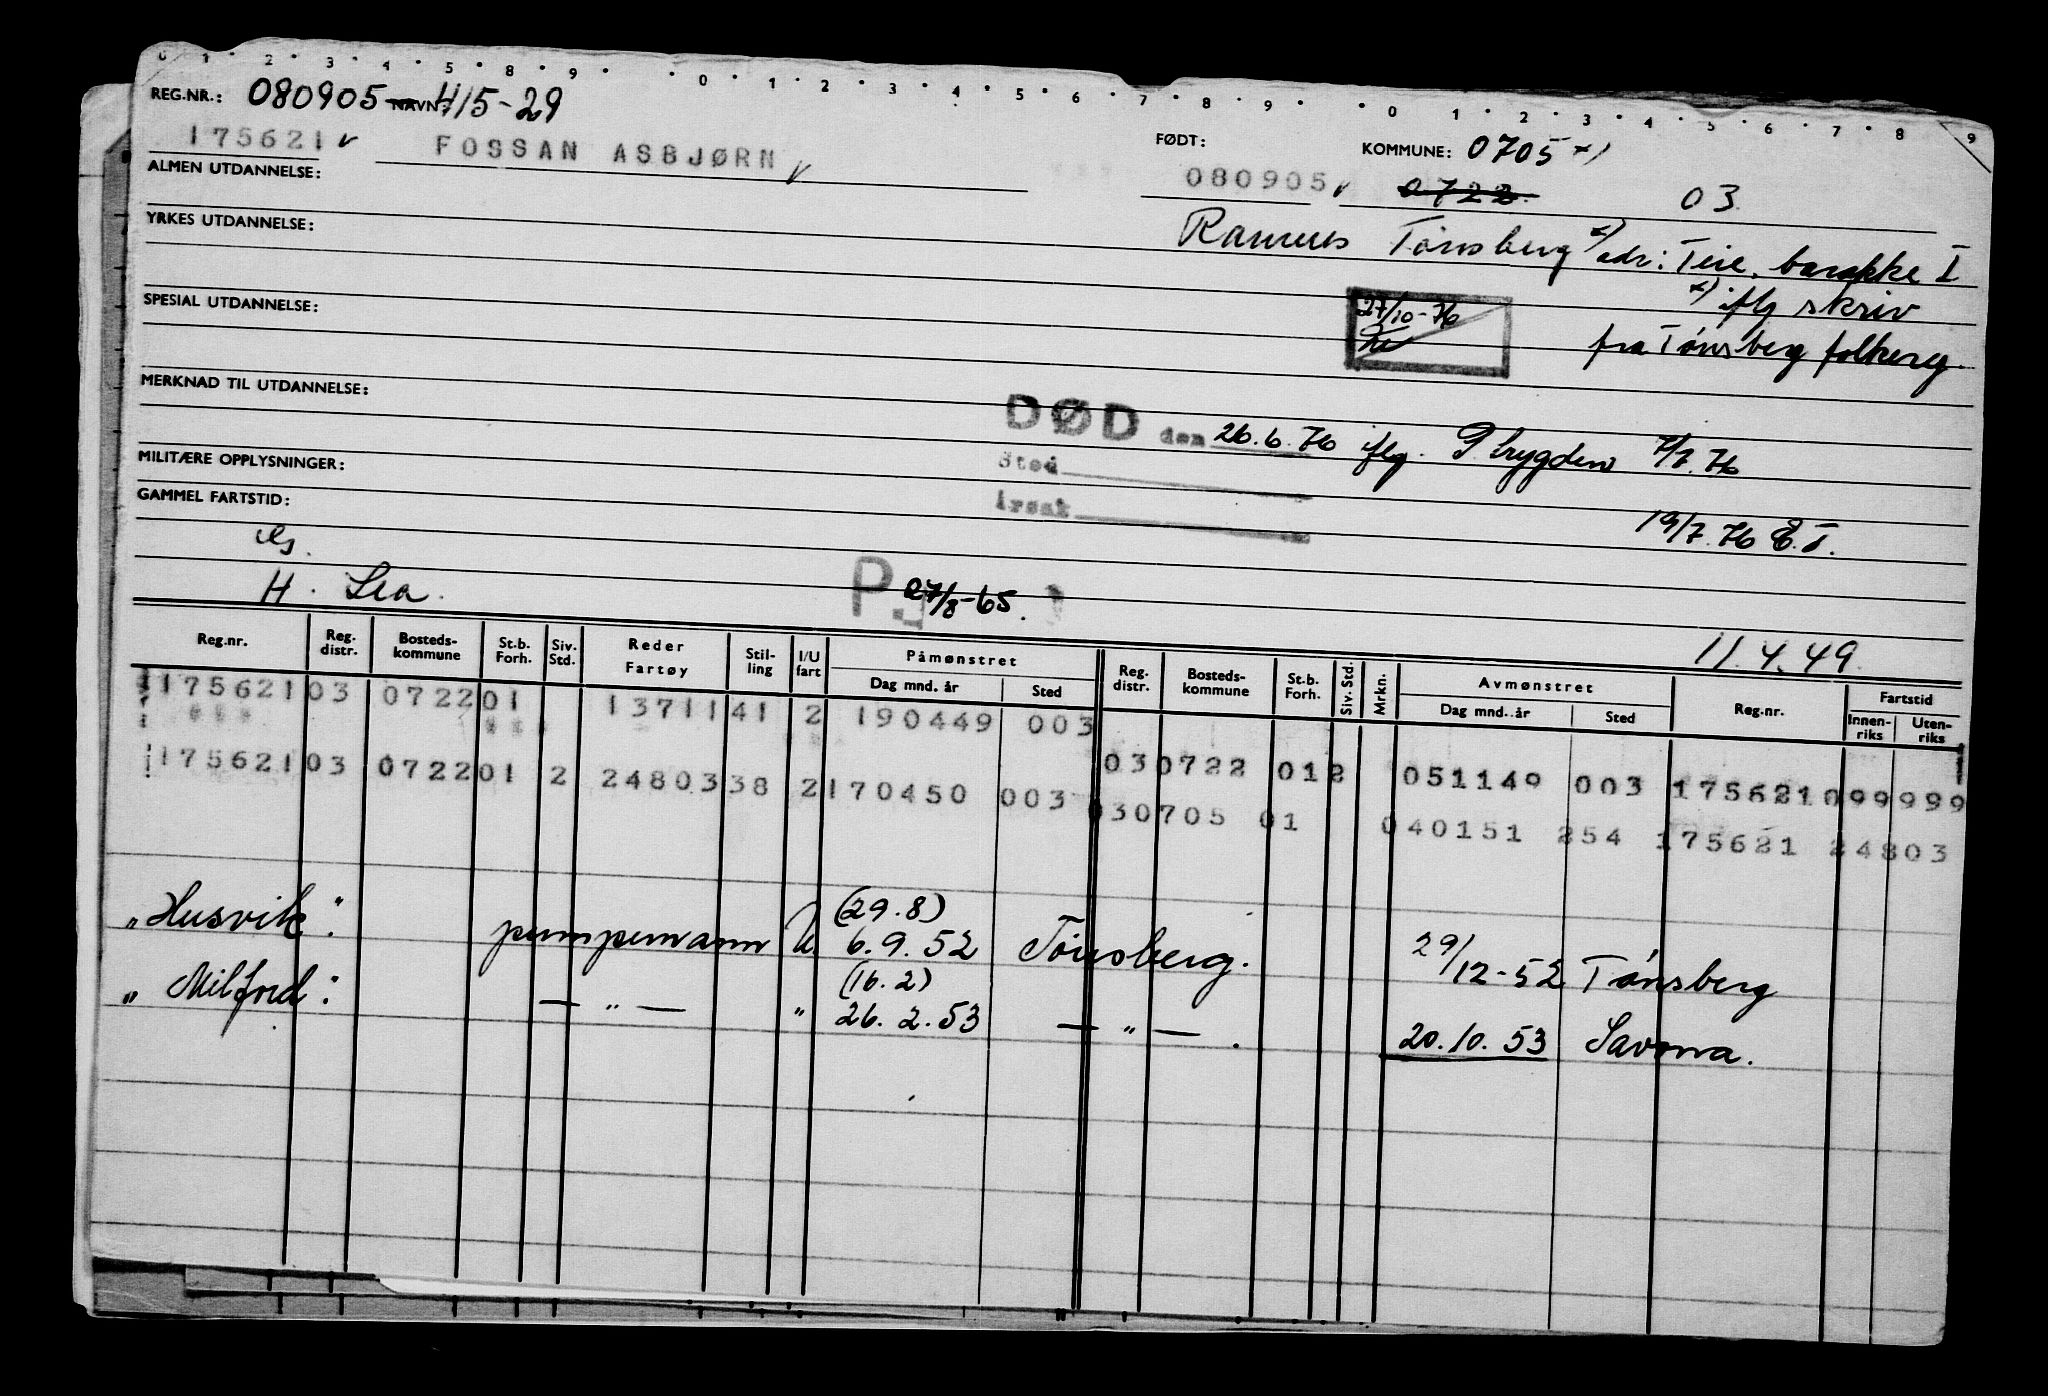 0 1 2 3 4 5 8 9 0 1 2 3 4 5 6 7 8 9 0 1 2 3 4 5 6 7 8 9
REG.NR.: 080905-415-29 NAVN:
175621 FOSSAN ASBJØRN FØDT: 080905 KOMMUNE: 0705 x)
0722 03
ALMEN UTDANNELSE:
YRKES UTDANNELSE: Ramnes Tønsberg x) adr: Teie, barakke I
x) iflg skriv
SPESIAL UTDANNELSE: 27/10-76 fra Tønsberg folkereg.
MERKNAD TIL UTDANNELSE:
DØD den 26.6.76 iflg. P.trygden 7/7.76
MILITÆRE OPPLYSNINGER: Sted
GAMMEL FARTSTID: Årsak 19/7.76 E.T.
H. Lea. P. 27/8-65.
11.4.49.
Reg.nr. Reg. distr. Bosteds- kommune St.b. Forh. Siv. Std. Reder Fartøy Stil- ling I/U fart Påmønstret Dag mnd. år Sted Reg. distr. Bosteds- kommune St.b. Forh. Siv. Std. Mrkn. Avmønstret Dag mnd. år Sted Reg.nr. Fartstid Innen- riks Uten- riks
175621 03 0722 01 13711 41 2 190449 003
03 0722 01 2 051149 003 175621 099 999
175621 03 0722 01 2 24803 38 2 170450 003
03 0705 01 040151 254 175621 24803
(29.8)
"Husvik": pumpemann U. 6.9.52 Tønsberg. 29/12-52 Tønsberg
(16.2)
"Milford": — " — " 26.2.53 — " —. 20.10.53 Savona.